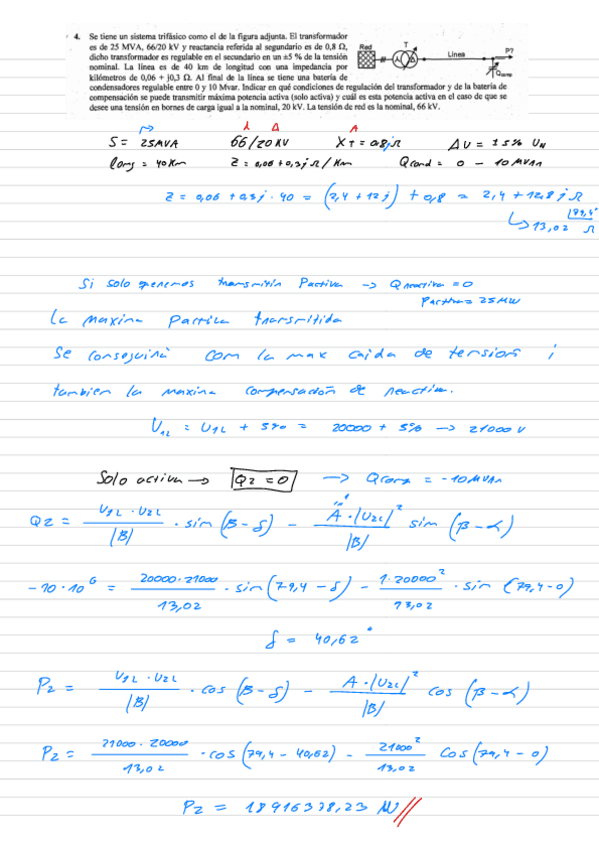 4. Se tiene un sistema trifásico como el de la figura adjunta. El transformador
es de 25 MVA, 66/20 kV y reactancia referida al segundario es de 0,8 Ω,
dicho transformador es regulable en el secundario en un ±5 % de la tensión
nominal. La línea es de 40 km de longitud con una impedancia por
kilómetros de 0,06 + j0,3 Ω. Al final de la línea se tiene una batería de
condensadores regulable entre 0 y 10 Mvar. Indicar en qué condiciones de regulación del transformador y de la batería de
compensación se puede transmitir máxima potencia activa (solo activa) y cuál es esta potencia activa en el caso de que se
desee una tensión en bornes de carga igual a la nominal, 20 kV. La tensión de red es la nominal, 66 kV.
Red T Línea P?
Qcomp
S = 25MVA 66/20KV XT = 0,8jΩ ΔU = ±5% UN
Long = 40Km Z = 0,06+0,3jΩ/Km Qcond = 0 - 10MVAr
Z = 0,06+0,3j · 40 = (2,4+12j) + 0,8 = 2,4+12,8j Ω
13,02 |79,4° Ω
Si solo queremos transmitir Pactiva -> Qreactiva = 0
Pactiva = 25MW
La maxima Pactiva transmitida
Se conseguirá com la max caida de tension i
tambien la maxima compensación de reactiva.
U12 = U1L + 5% = 20000 + 5% -> 21000V
Solo activa -> Q2 = 0 -> Qcomp = -10MVAr
Q2 = U1L · U2L / |B| · sin (β - δ) - A · |U2L|² / |B| sin (β - α)
-10·10⁶ = 20000·21000 / 13,02 · sin (79,4 - δ) - 1·20000² / 13,02 · sin (79,4-0)
δ = 40,62°
P2 = U1L · U2L / |B| · cos (β - δ) - A · |U2L|² / |B| cos (β - α)
P2 = 21000 · 20000 / 13,02 · cos (79,4 - 40,62) - 21000² / 13,02 cos (79,4 - 0)
P2 = 18916338,23 W